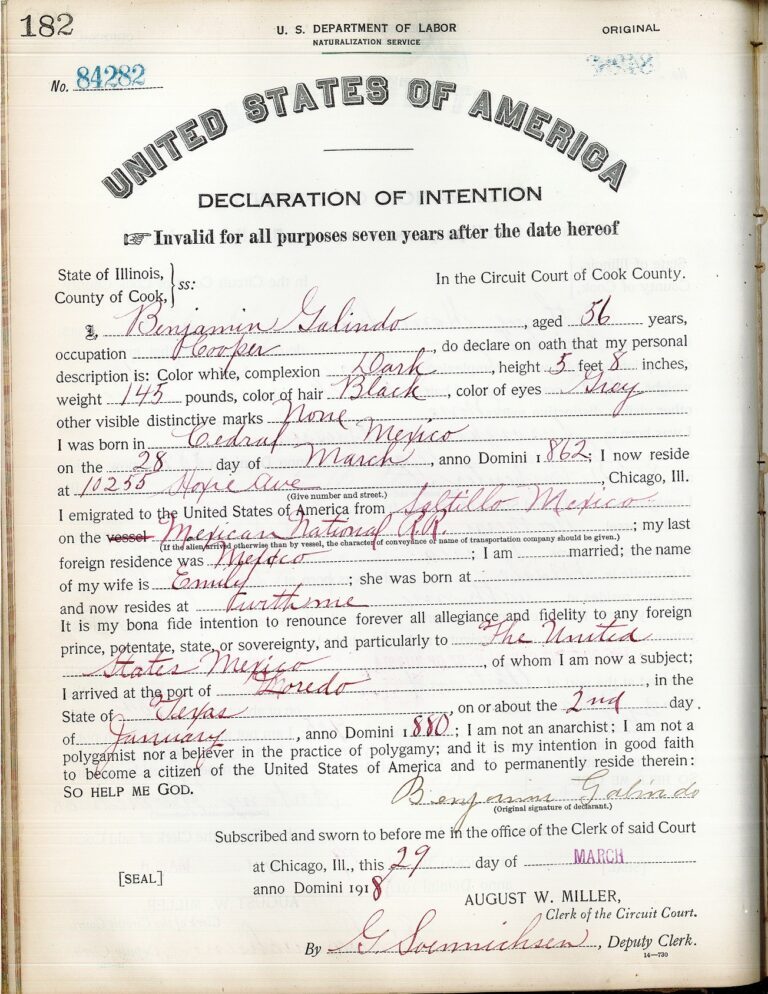 182
U. S. DEPARTMENT OF LABOR
NATURALIZATION SERVICE
ORIGINAL
No. 84282
UNITED STATES OF AMERICA
DECLARATION OF INTENTION
☞ Invalid for all purposes seven years after the date hereof
State of Illinois,
County of Cook, } ss:
In the Circuit Court of Cook County.
I, Benjamin Galindo, aged 56 years,
occupation Cooper, do declare on oath that my personal
description is: Color white, complexion Dark, height 5 feet 8 inches,
weight 145 pounds, color of hair Black, color of eyes Grey
other visible distinctive marks None
I was born in Cedral Mexico
on the 28 day of March, anno Domini 1862; I now reside
at 10255 Hoxie Ave, Chicago, Ill.
(Give number and street.)
I emigrated to the United States of America from Saltillo Mexico
on the vessel Mexican National R.R.; my last
(If the alien arrived otherwise than by vessel, the character of conveyance or name of transportation company should be given.)
foreign residence was Mexico; I am married; the name
of my wife is Emily; she was born at
and now resides at with me
It is my bona fide intention to renounce forever all allegiance and fidelity to any foreign
prince, potentate, state, or sovereignty, and particularly to The United
States Mexico, of whom I am now a subject;
I arrived at the port of Loredo, in the
State of Texas, on or about the 2nd day
of January, anno Domini 1880; I am not an anarchist; I am not a
polygamist nor a believer in the practice of polygamy; and it is my intention in good faith
to become a citizen of the United States of America and to permanently reside therein:
SO HELP ME GOD.
Benjamin Galindo
(Original signature of declarant.)
Subscribed and sworn to before me in the office of the Clerk of said Court
at Chicago, Ill., this 29 day of MARCH
anno Domini 1918
[SEAL]
AUGUST W. MILLER,
Clerk of the Circuit Court.
By G Soennichsen, Deputy Clerk.
14—730